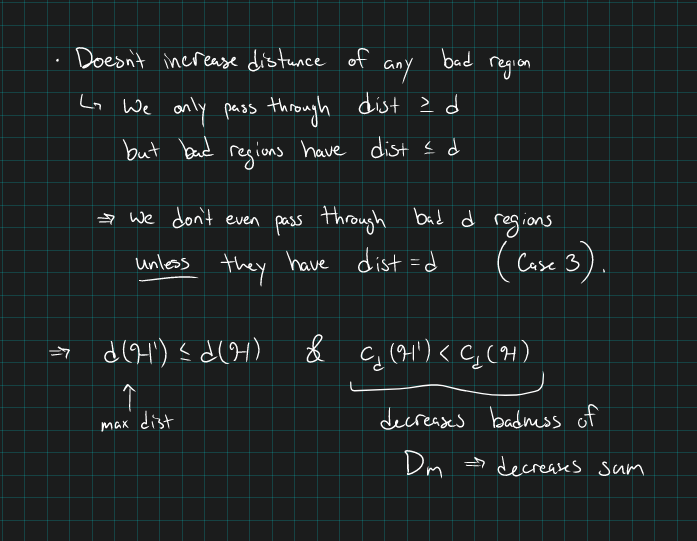 · Doesn't increase distance of any bad region
↳ We only pass through dist ≥ d
but bad regions have dist ≤ d
⇒ we don't even pass through bad d regions
unless they have dist = d (Case 3).
⇒ d(ℋ') ≤ d(ℋ) & C_d(ℋ') < C_d(ℋ)
↑
max dist
decreases badness of
Dm ⇒ decreases sum